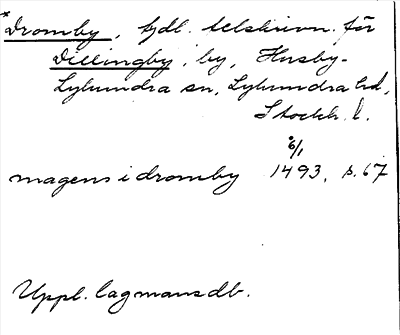 *Dromby, tydl. felskrivn. för
Dillingby, by, Husby-
Lyhundra sn, Lyhundra hd,
Stockh. l.
6/1
magens i dromby 1493, s. 67
Uppl. lagmansdb.